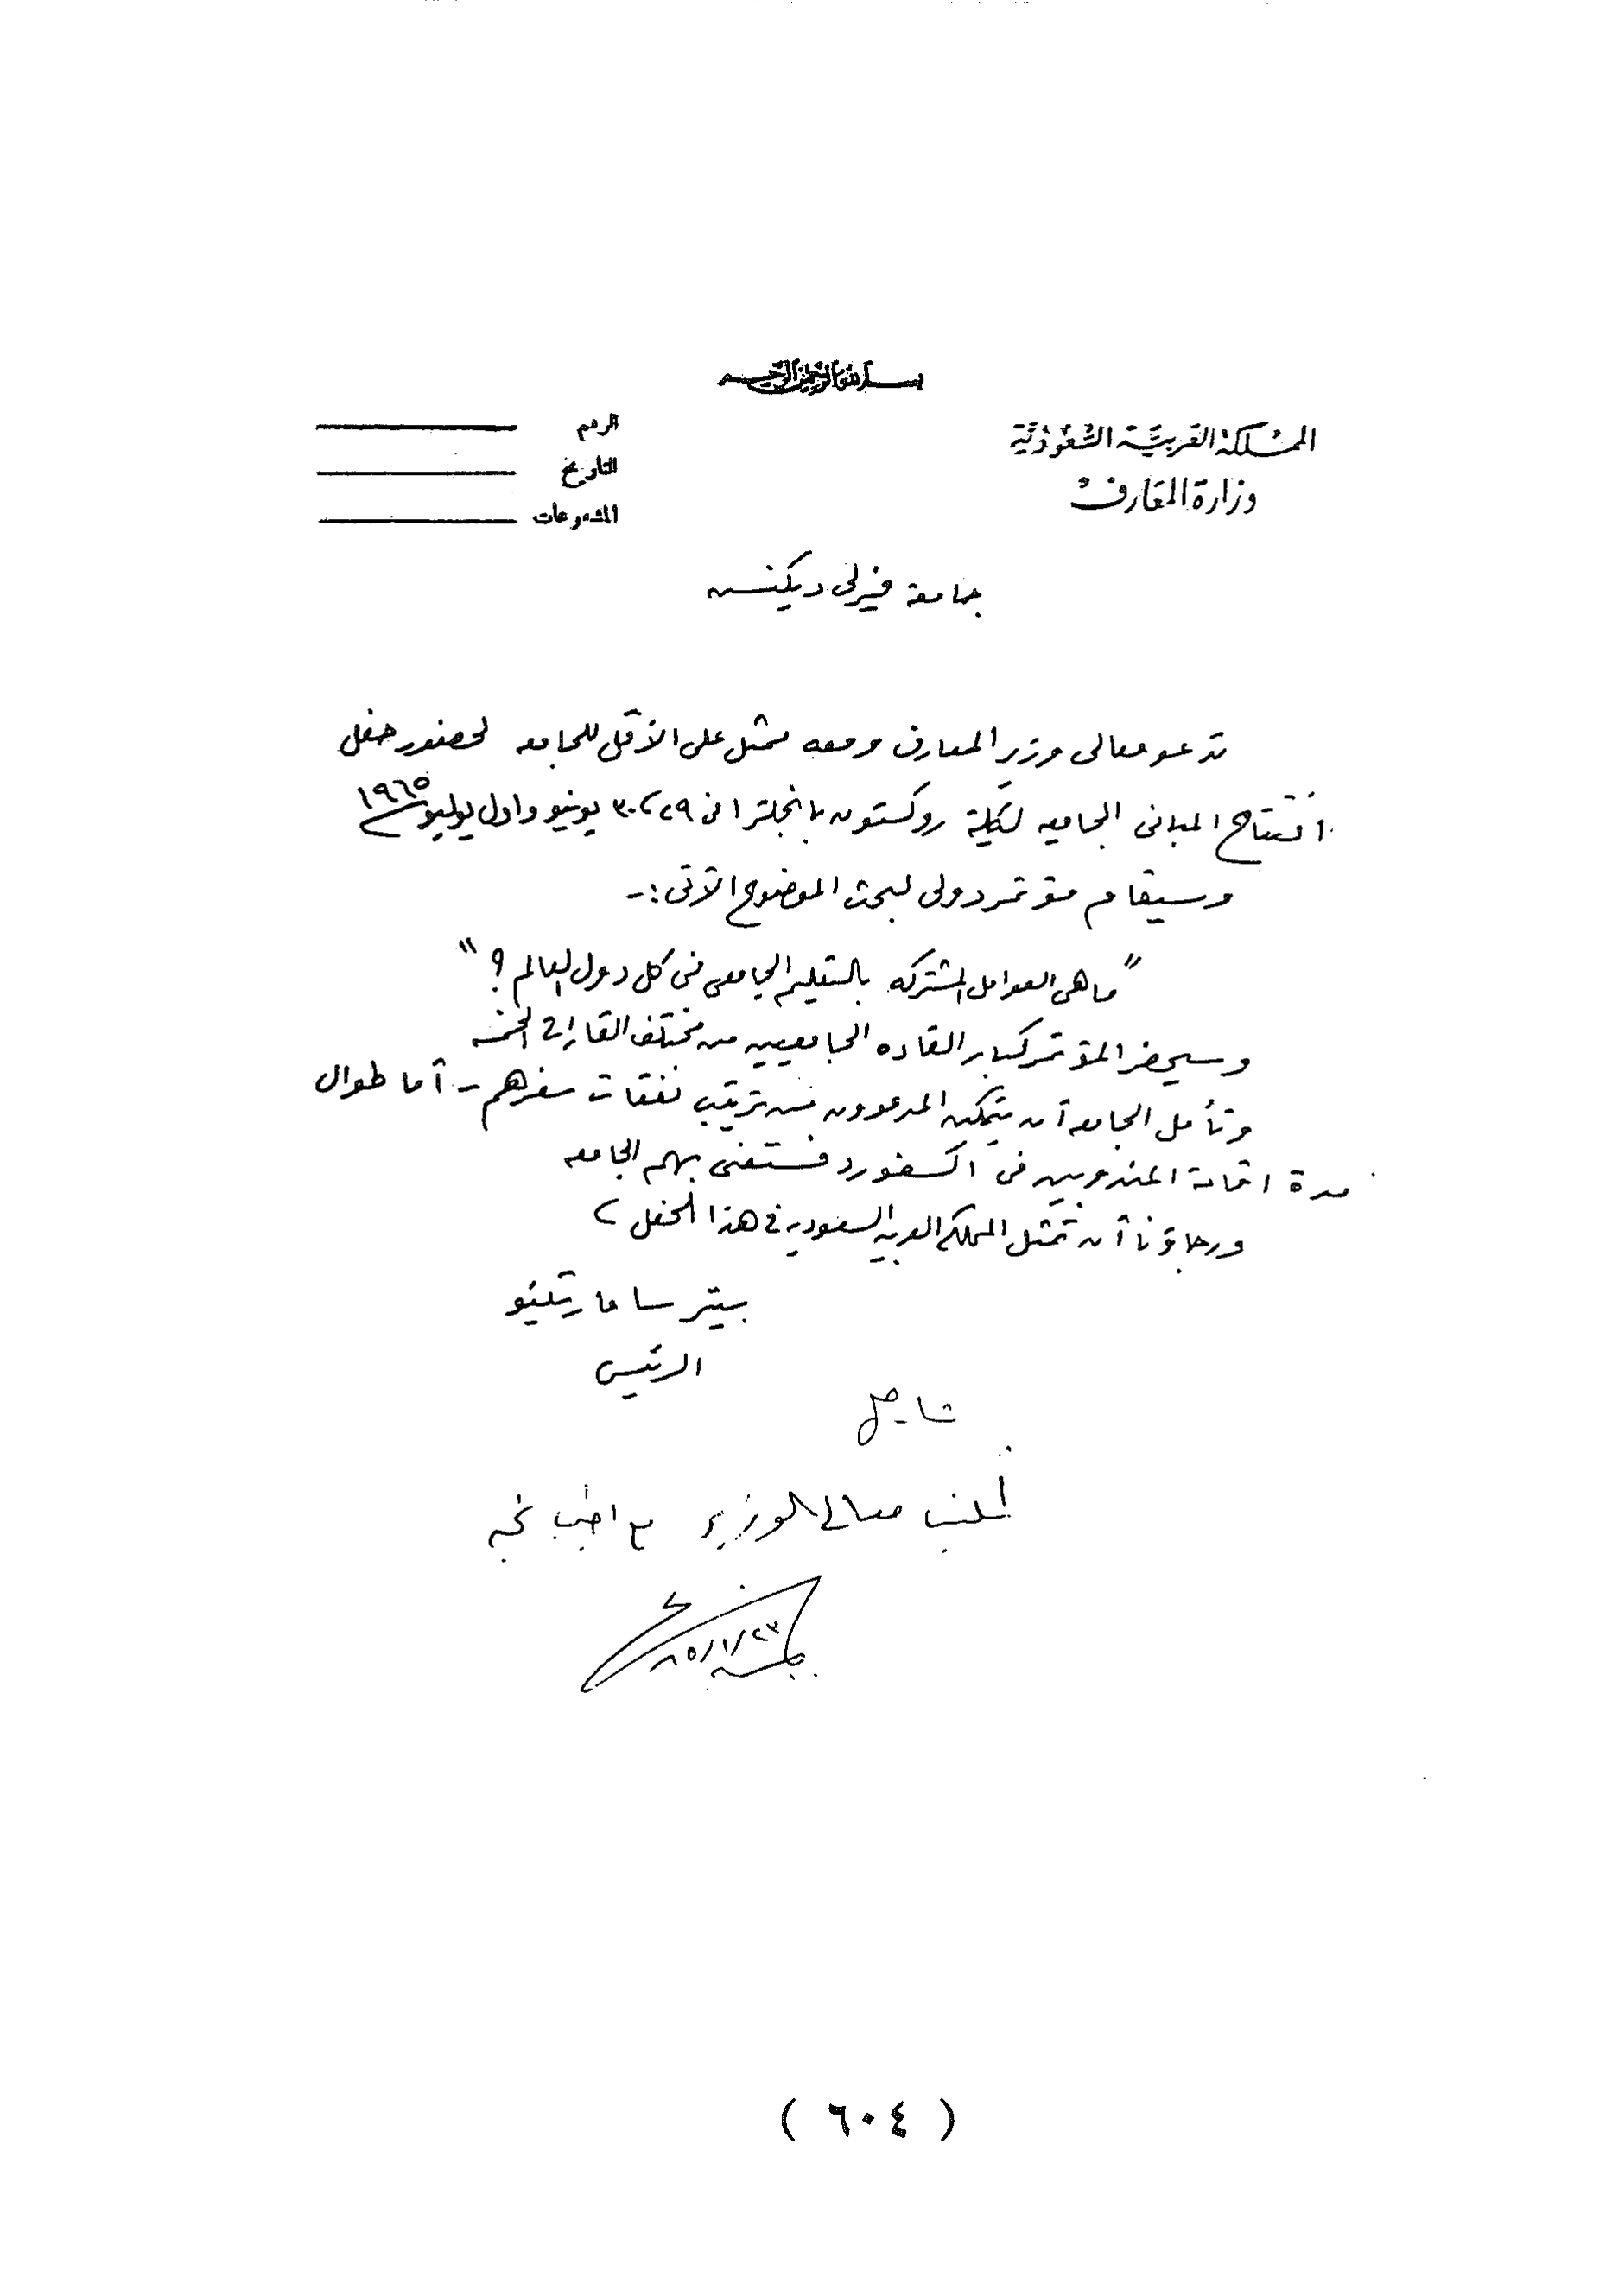 بسم الله الرحمن الرحيم
المملكة العربية السعودية
وزارة المعارف
الرقم
التاريخ
المشفوعات
جامعة فيرلى ديكنسن
تدعو معالى وزير المعارف ومعه ممثل على الأقل للجامعه لحضور حفل
افتتاح المبانى الجامعيه لكلية روكستون بانجلترا فى ٢٩ ، ٣٠ يونيو واول يوليو ١٩٦٥
وسيقام مؤتمر دولى لبحث الموضوع الآتى :-
" ما هى العوامل المشتركه بالتعليم الجامعى فى كل دول العالم ؟ "
وسيحضر المؤتمر كبار القاده الجامعيين من مختلف القارات الخمسه
وتأمل الجامعه أن يتمكن المدعوون من ترتيب نفقات سفرهم - أما طوال
مدة اقامة المندوبين فى اكسفورد فستعنى بهم الجامعه
ورجاؤنا أن تمثل المملكه العربيه السعوديه فى هذا الحفل ،
بيتر سامارتينو
الرئيس
معالى الوزير مع
٨٥/١/٢٣
( ٦٠٤ )